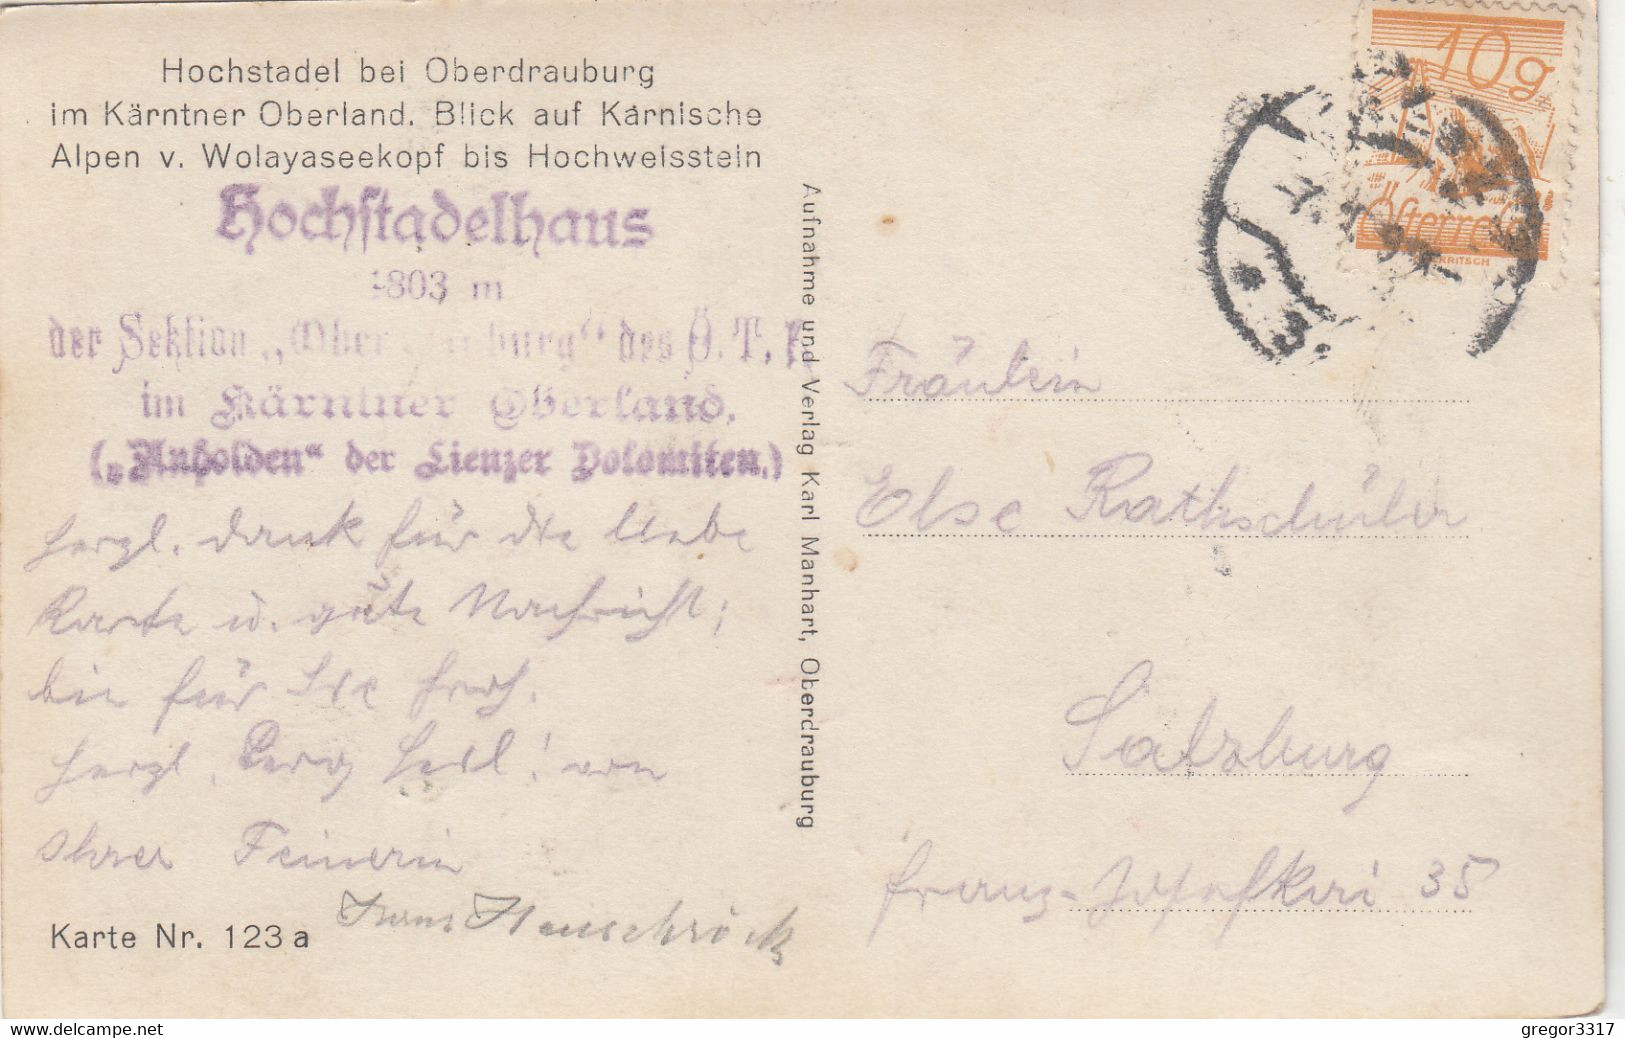 Hochstadel bei Oberdrauburg
im Kärntner Oberland. Blick auf Karnische
Alpen v. Wolayaseekopf bis Hochweisstein
Hochstadelhaus
1803 m
der Sektion „Ober burg" des Ö. T.
im Kärntner Oberland.
(„Unholden" der Lienzer Dolomiten.)
herzl. Dank für die liebe
Karte u. gute Nachricht;
bin für Sie froh.
Herzl. Berg Heil! von
Ihrer Feinerin
Hans
Karte Nr. 123 a
Aufnahme und Verlag Karl Manhart, Oberdrauburg
10g
Österreich
Fräulein
Else Rathschüler
Salzburg
Franz-Josefkai 35
www.delcampe.net
gregor3317